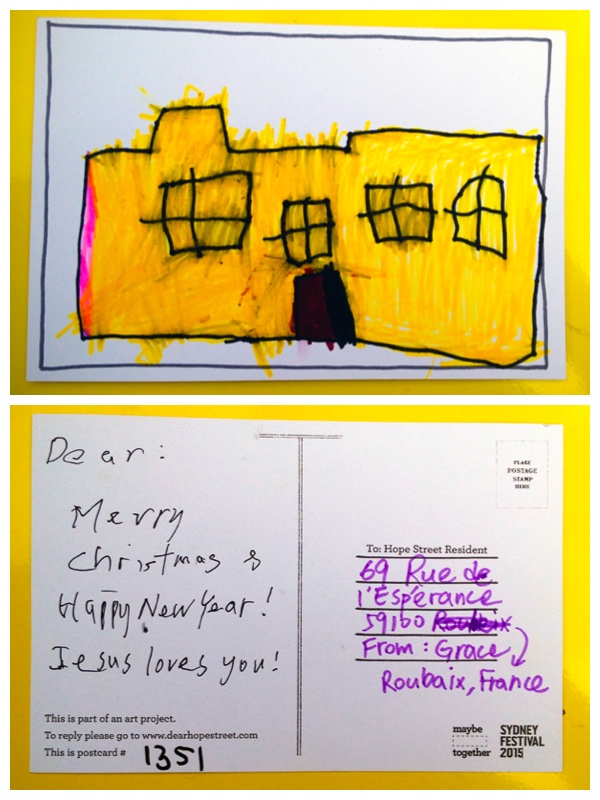 Dear:
Merry
christmas &
Happy New Year!
Jesus loves you!
This is part of an art project.
To reply please go to www.dearhopestreet.com
This is postcard # 1351
PLACE
POSTAGE
STAMP
HERE
To: Hope Street Resident
69 Rue de
l'Espérance
59160 Roubaix
From: Grace
Roubaix, France
maybe
together
SYDNEY
FESTIVAL
2015